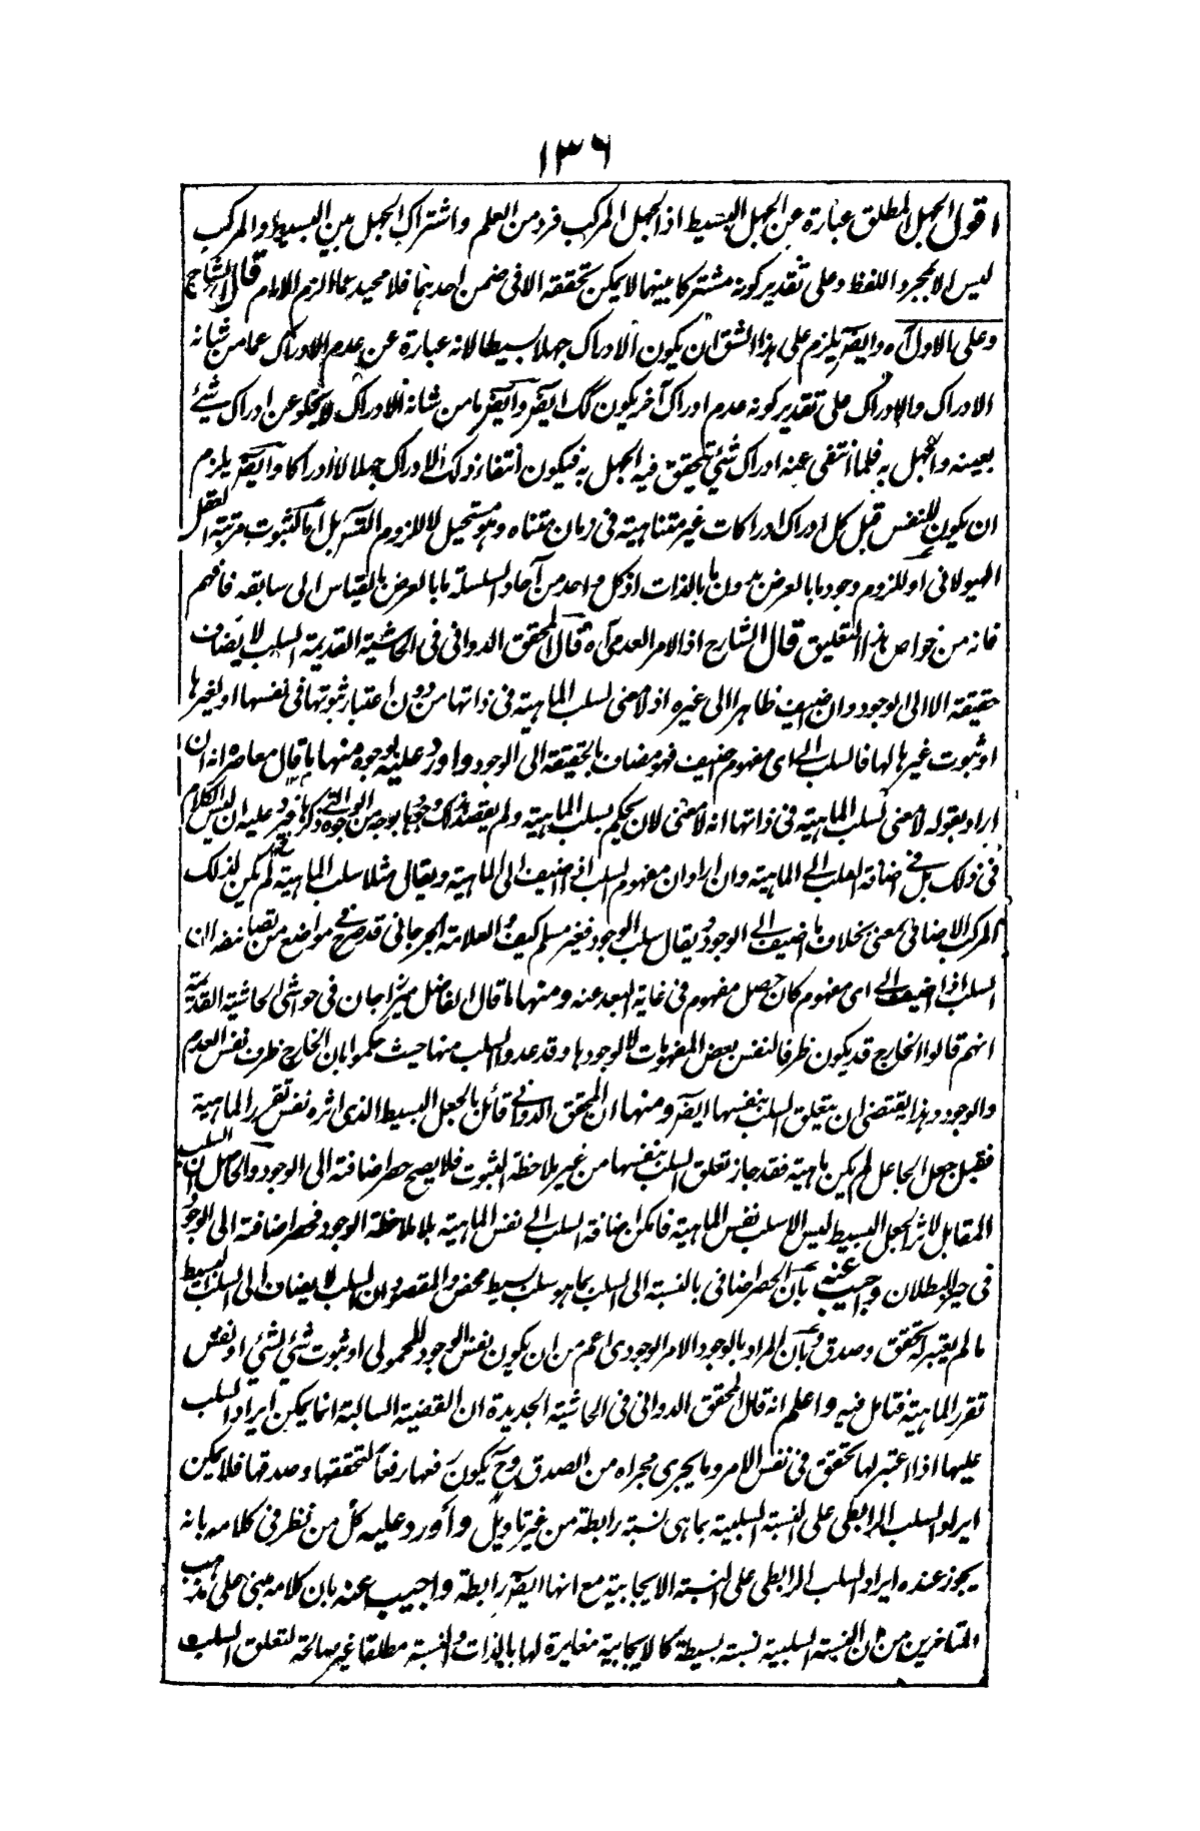 ١٣٦
اقول الجهل المطلق عبارة عن الجهل البسيط اذ الجهل المركب فرد من العلم واشتراك الجهل بين البسيط والمركب
ليس الا بمجرد اللفظ وعلى تقدير كونه مشتركا بينهما لا يمكن تحققه الا فى ضمن احدهما فلا محيد عما الزم الامام قال الشارح
وعلى الاول آه وايضا يلزم على هذا الشق ان يكون الادراك جهلا بسيطا لانه عبارة عن عدم الادراك عما من شانه
الادراك والادراك على تقدير كونه عدم ادراك آخر يكون كك ايضا وايضا ما من شانه الادراك لا يخلو عن ادراك شئ
بعينه والجهل به فلما انتفى عنه ادراك شئ تحقق فيه الجهل به فيكون انتفاء ذلك الادراك جهلا لا ادراكا وايضا يلزم
ان يكون للنفس قبل كل ادراك ادراكات غير متناهية فى زمان متناه وهو مستحيل لا للزوم التس بل اما لثبوت مرتبة العقل
الهيولانى او للزوم وجود ما بالعرض بدون ما بالذات اذ كل واحد من آحاد السلسلة ما بالعرض بالقياس الى سابقه فافهم
فانه من خواص هذا التعليق قال الشارح اذ الامر العدمى آه قال المحقق الدوانى فى الحاشية القديمة السلب لا يضاف
حقيقة الا الى الوجود وان اضيف ظاهرا الى غيره اذ لا معنى لسلب الماهية فى ذاتها من دون اعتبار ثبوتها فى نفسها او لغيرها
او ثبوت غيرها لها فالسلب الى اى مفهوم اضيف فهو مضاف بالحقيقة الى الوجود واورد عليه بوجوه منها ما قال معاصره انه ان
اراد بقوله لا معنى لسلب الماهية فى ذاتها انه لا معنى لان يحكم بسلب الماهية ولم يقصد بذلك وجودها بوجه من الوجوه التى ذكرها فيرد عليه ان ليس الكلام
فى ذلك بل فى اضافة السلب الى الماهية وان اراد ان مفهوم السلب اذا اضيف الى الماهية ويقال مثلا سلب الماهية لم يكن لذلك
المركب الاضافى معنى بخلاف ما اضيف الى الوجود ويقال سلب الوجود فغير مسلم كيف والعلامة الجرجانى قد صرح فى مواضع من تصانيفه ان
السلب اذا اضيف الى اى مفهوم كان حصل مفهوم فى غاية البعد عنه ومنها ما قال الفاضل ميرزا جان فى حواشى الحاشية القديمة
انهم قالوا الخارج قد يكون ظرفا لنفس بعض المفهومات لا لوجودها وقد عدوا السلب منها حيث حكموا بان الخارج ظرف نفس العدم
والوجود وهذا يقتضى ان يتعلق السلب بنفسها ايضا ومنها ان المحقق الدوانى قائل بالجعل البسيط الذى اثره نفس تقرر الماهية
فقبل جعل الجاعل لم يكن ماهية فقد جاز تعلق السلب بنفسها من غير ملاحظة الثبوت فلا يصح حصر اضافته الى الوجود والحاصل ان السلب
المقابل لاثر الجعل البسيط ليس الا سلب نفس الماهية فامكن اضافة السلب الى نفس الماهية بلا ملاحظة الوجود فحصر اضافته الى الوجود
فى حيز البطلان واجيب عنه بان الحصر اضافى بالنسبة الى السلب بما هو سلب بسيط محض والمقصود ان السلب لا يضاف الى السلب البسيط
ما لم يعتبر له تحقق وصدق وبان المراد بالوجود الامر الوجودى اعم من ان يكون نفس الوجود المحمولى او ثبوت شئ لشئ او نفس
تقرر الماهية فتامل فيه واعلم انه قال المحقق الدوانى فى الحاشية الجديدة ان القضية السالبة انما يمكن ايراد السلب
عليها اذا اعتبر لها تحقق فى نفس الامر وما يجرى مجراه من الصدق وح يكون رفعها رفعا لتحققها وصدقها فلا يمكن
ايراد السلب الرابطى على النسبة السلبية بما هى نسبة رابطة من غير تاويل واورد عليه كل من نظر فى كلامه بانه
يجوز عنده ايراد السلب الرابطى على النسبة الايجابية مع انها ايضا رابطة واجيب عنه بان كلامه مبنى على مذهب
المتاخرين من ان النسبة السلبية نسبة بسيطة كالايجابية مغايرة لها بالذات والنسبة مطلقا غير صالحة لتعلق السلب